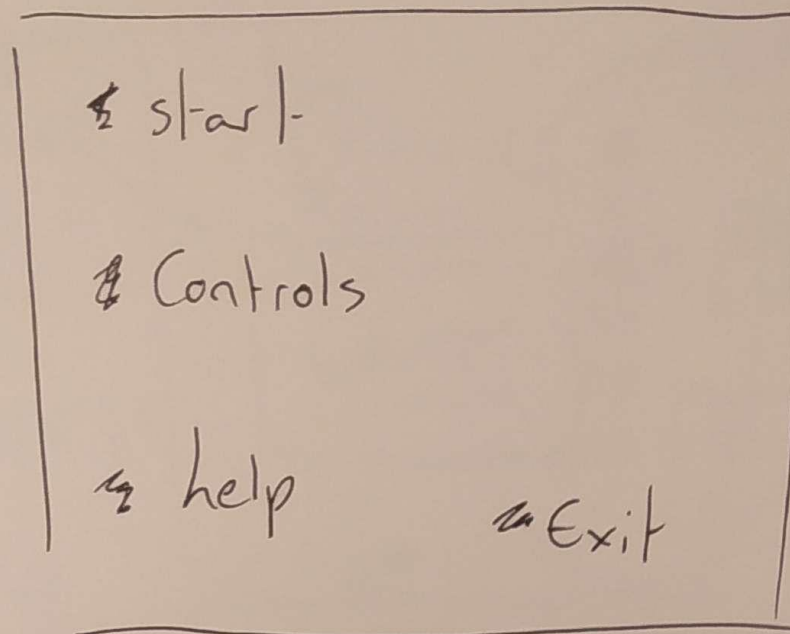 start
Controls
help
Exit